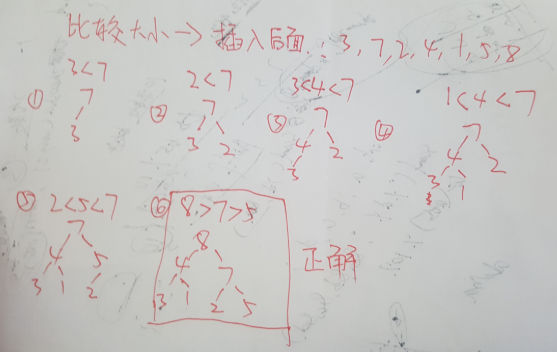 比较大小→插入后面:3,7,2,4,1,5,8
① 3<7
7
3
② 2<7
7
3 2
③ 3<4<7
7
4 2
3
④ 1<4<7
7
4 2
3 1
3
⑤ 2<5<7
7
4 5
3 1 2
⑥ 8>7>5
8
4 7
3 1 2 5
正解